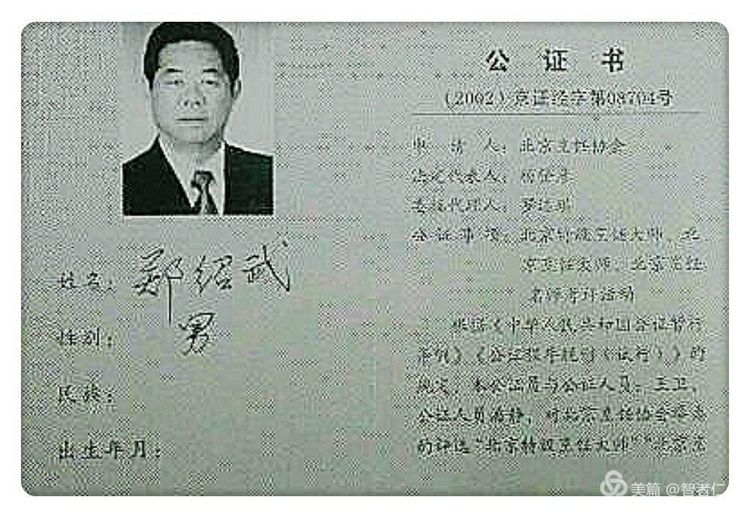 姓名: 郑绍武
性别: 男
民族:
出生年月:
公证书
(2002)京证经字第08704号
申请人: 北京烹饪协会
法定代表人:
委托代理人:
公证事项: 北京特级烹饪大师、北
京烹饪大师、北京烹饪
名师考评活动
根据《中华人民共和国公证暂行
条例》《公证程序规则(试行)》的
规定,本公证员与公证人员王卫、
公证人员 对北京烹饪协会
的评选“北京特级烹饪大师”“北京烹
美篇 @智者仁